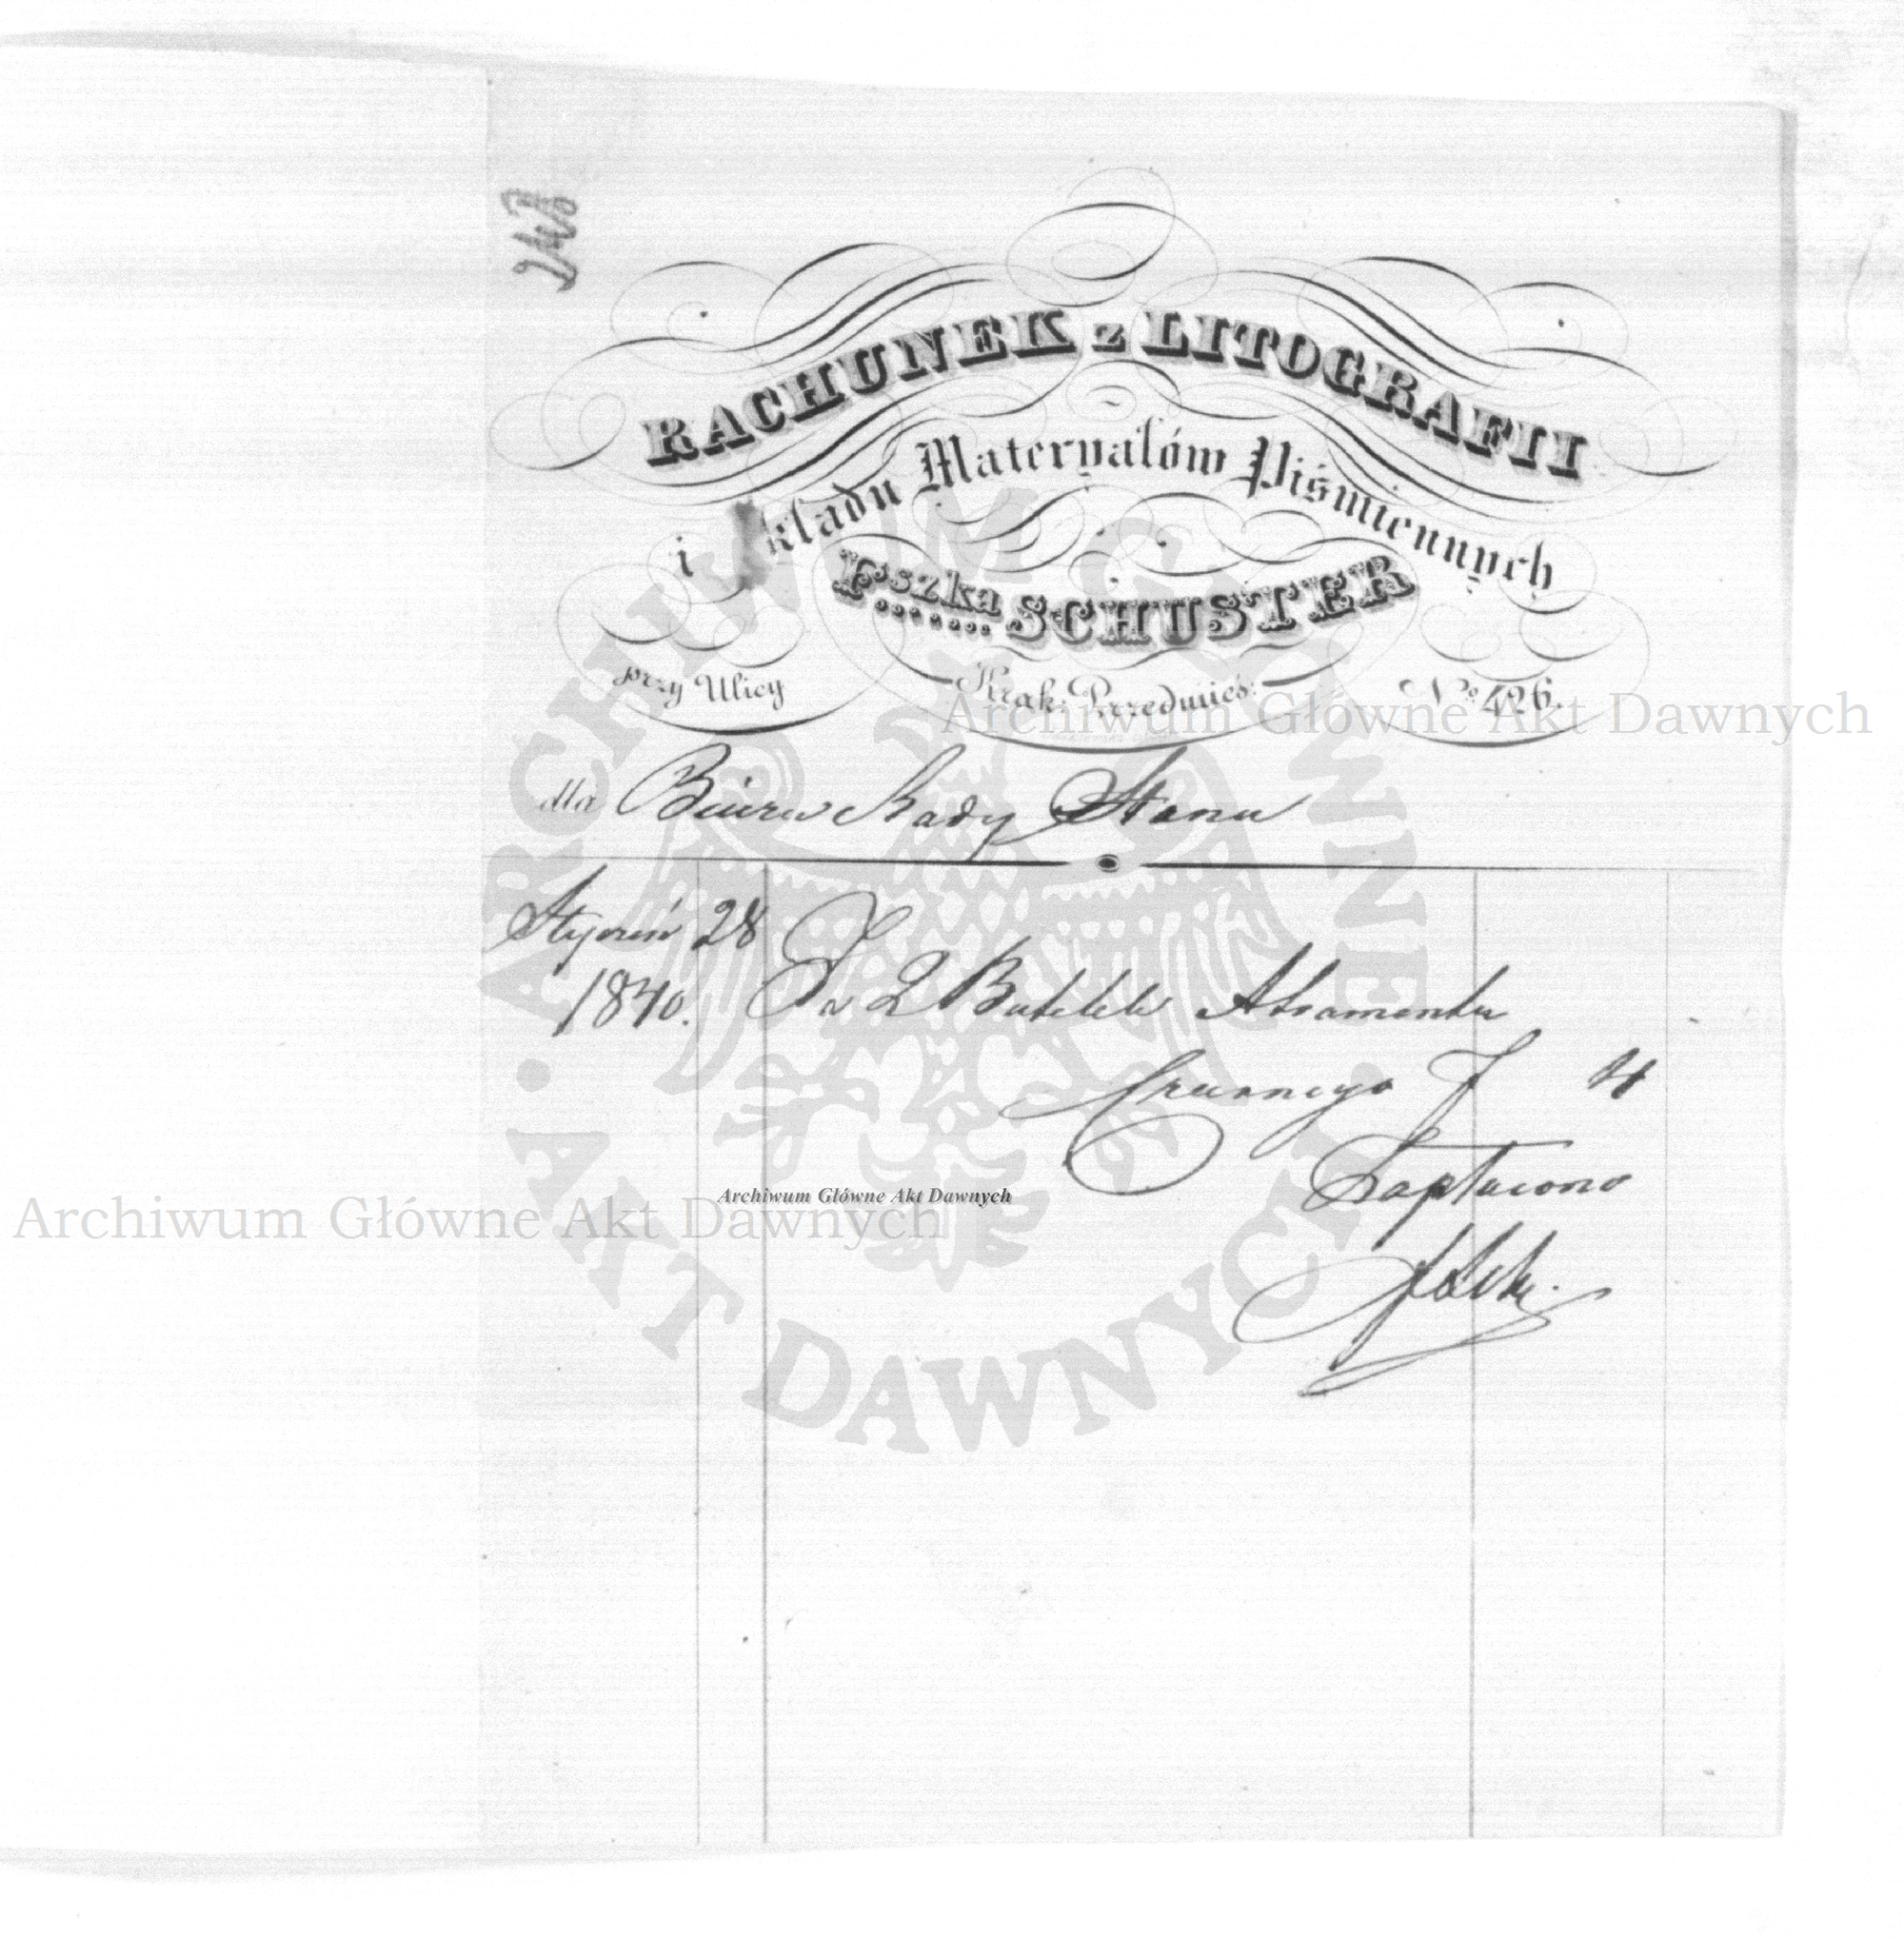 RACHUNEK z LITOGRAFII
i Składu Materyałów Piśmiennych
Fszka SCHUSTER
przy Ulicy Krak: Przedmieś: No 426.
dla Biura Rady Stanu
Styczeń 28
1840. Za 2 Butelek Atramentu
Czarnego f 4
Zapłacono
Archiwum Główne Akt Dawnych
Archiwum Główne Akt Dawnych
Archiwum Główne Akt Dawnych
ARCHIWUM GŁÓWNE AKT DAWNYCH